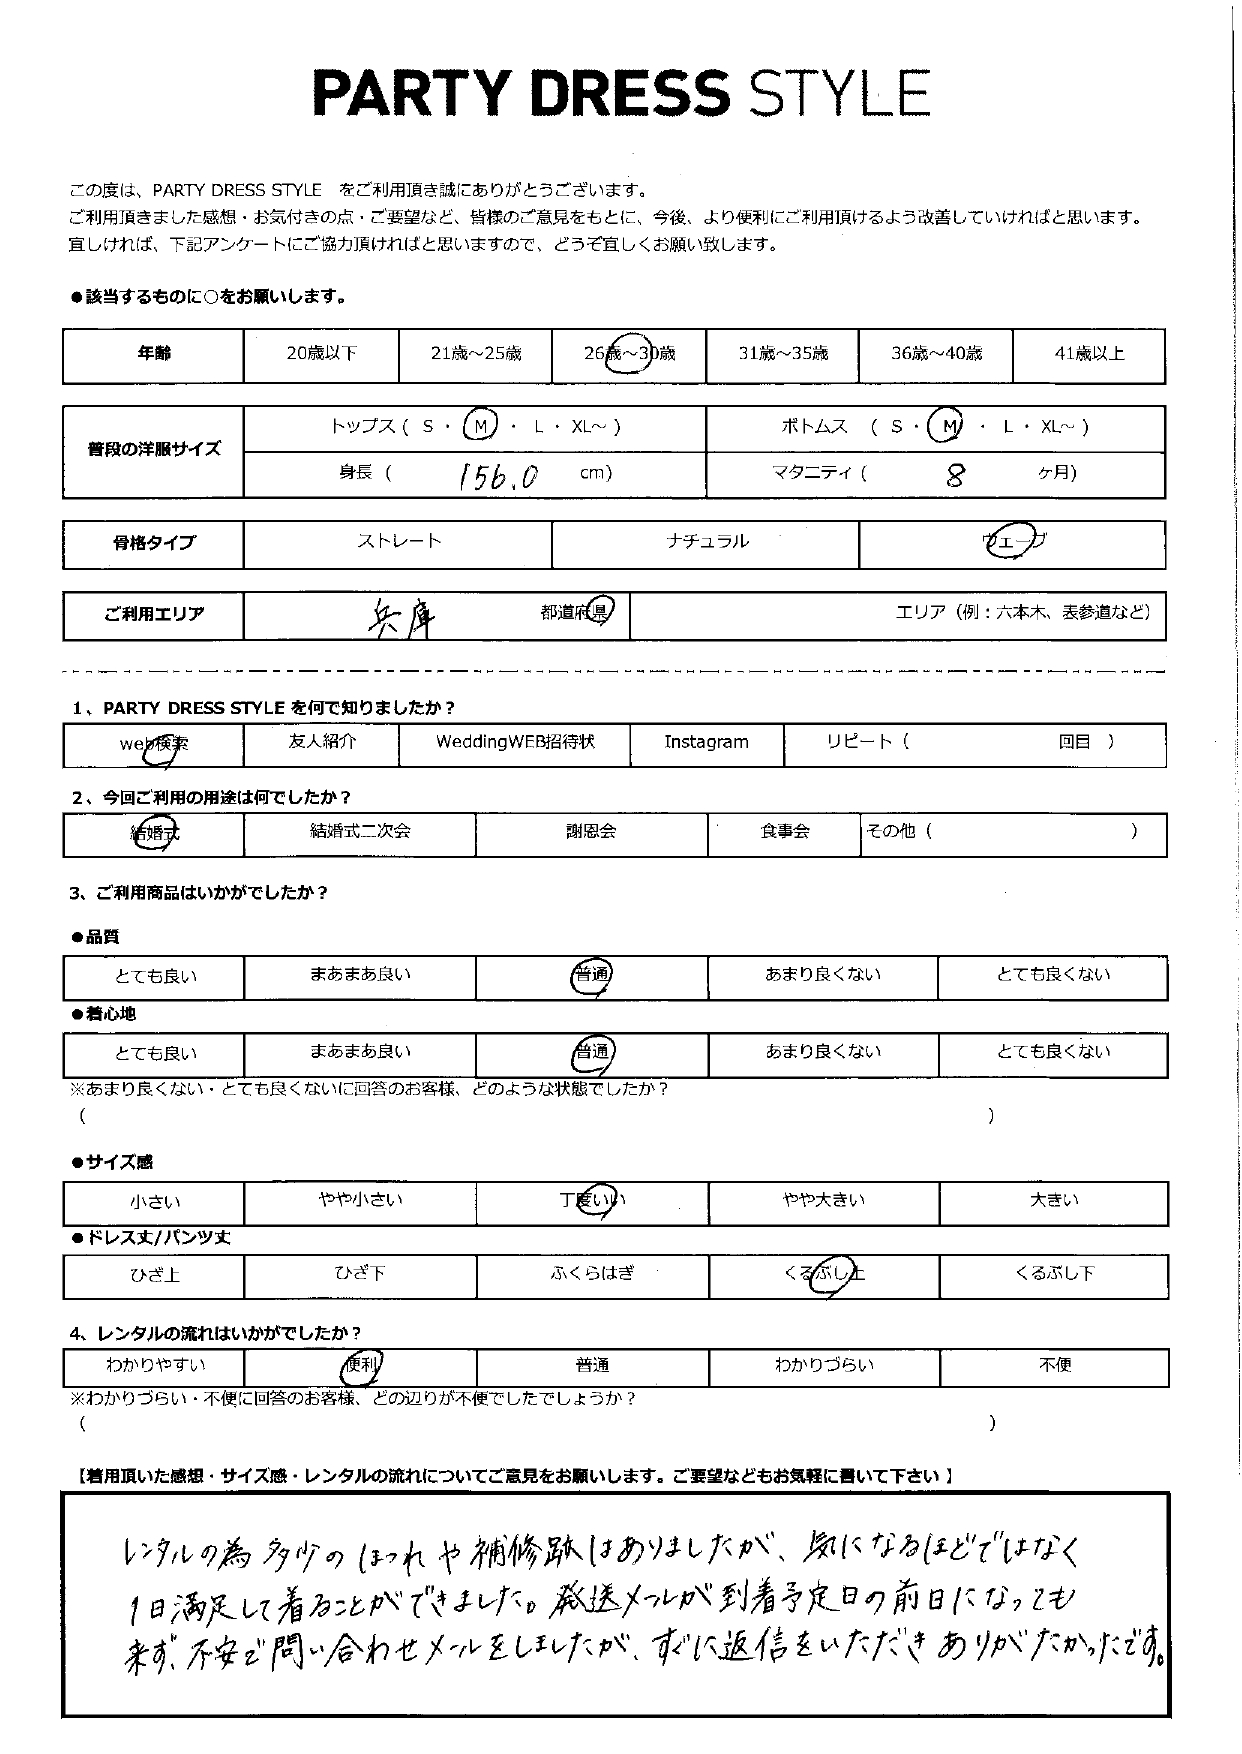 PARTY DRESS STYLE
この度は、PARTY DRESS STYLE をご利用頂き誠にありがとうございます。
ご利用頂きました感想・お気付きの点・ご要望など、皆様のご意見をもとに、今後、より便利にご利用頂けるよう改善していければと思います。
宜しければ、下記アンケートにご協力頂ければと思いますので、どうぞ宜しくお願い致します。
●該当するものに○をお願いします。
年齢 20歳以下 21歳～25歳 26歳～30歳 31歳～35歳 36歳～40歳 41歳以上
普段の洋服サイズ トップス ( S ・ M ・ L ・ XL～ ) ボトムス ( S ・ M ・ L ・ XL～ )
身長 ( 156.0 cm) マタニティ ( 8 ヶ月)
骨格タイプ ストレート ナチュラル ウェーブ
ご利用エリア 兵庫 都道府県 エリア（例：六本木、表参道など）
1、PARTY DRESS STYLE を何で知りましたか？
web検索 友人紹介 WeddingWEB招待状 Instagram リピート ( 回目 )
2、今回ご利用の用途は何でしたか？
結婚式 結婚式二次会 謝恩会 食事会 その他 ( )
3、ご利用商品はいかがでしたか？
●品質
とても良い まあまあ良い 普通 あまり良くない とても良くない
●着心地
とても良い まあまあ良い 普通 あまり良くない とても良くない
※あまり良くない・とても良くないに回答のお客様、どのような状態でしたか？
( )
●サイズ感
小さい やや小さい 丁度いい やや大きい 大きい
●ドレス丈/パンツ丈
ひざ上 ひざ下 ふくらはぎ くるぶし上 くるぶし下
4、レンタルの流れはいかがでしたか？
わかりやすい 便利 普通 わかりづらい 不便
※わかりづらい・不便に回答のお客様、どの辺りが不便でしたでしょうか？
( )
【着用頂いた感想・サイズ感・レンタルの流れについてご意見をお願いします。ご要望などもお気軽に書いて下さい 】
レンタルの為多少のほつれや補修跡はありましたが、気になるほどではなく
1日満足して着ることができました。発送メールが到着予定日の前日になっても
来ず、不安で問い合わせメールをしましたが、すぐに返信をいただきありがたかったです。